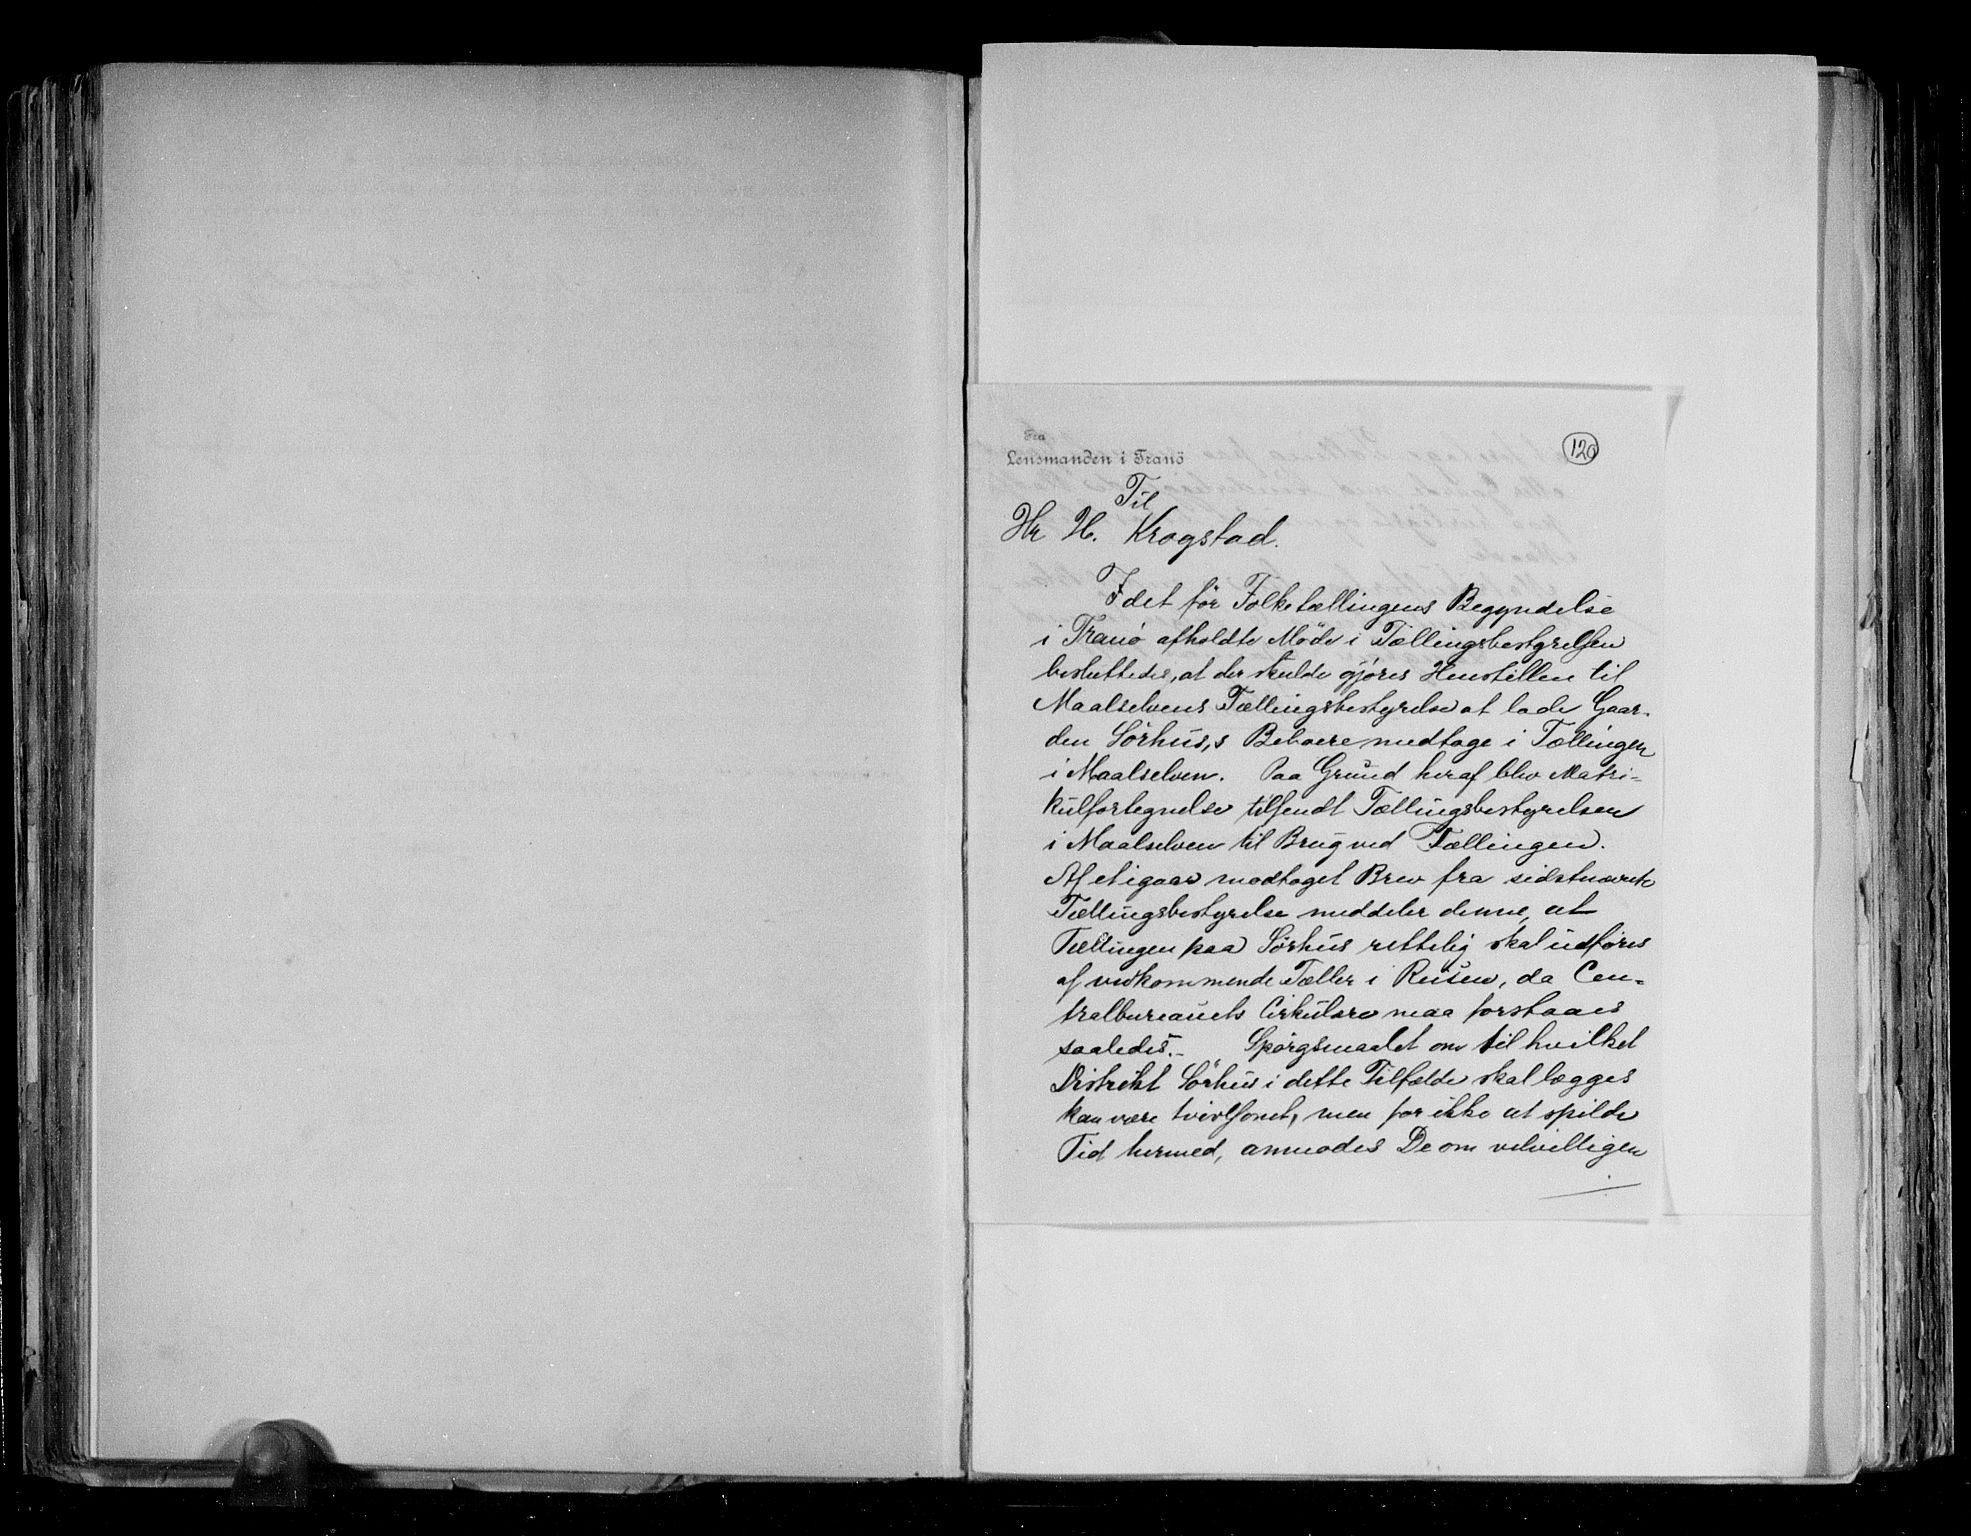 Fra
Lensmanden i Tranö
120
Til
Hr H. Krogstad.
I det før Folketællingens Begyndelse
i Tranö afholdte Möde i Tællingsbestyrelsen
besluttedes, at der skulde gjöres Henstillen til
Maalselvens Tællingsbestyrelse at lade Gaar-
den Sörhus,s Beboere medtage i Tællingen
i Maalselven. Paa Grund heraf blev Matri-
kulfortegnelse tilsendt Tællingsbestyrelsen
i Maalselven til Brug ved Tællingen.
Af et igaar modtaget Brev fra sidstnævnte
Tællingsbestyrelse meddeler denne, at
Tællingen paa Sörhus rettelig skal udföres
af vedkommende Tæller i Reisen, da Cen-
tralbureauets Cirkulære maa forstaaes
saaledes.- Spörgsmaalet om til hvilket
Distrikt Sörhus i dette Tilfælde skal lægges
kan være tvivlsomt, men for ikke at spilde
Tid hermed, anmodes De om velvilligen